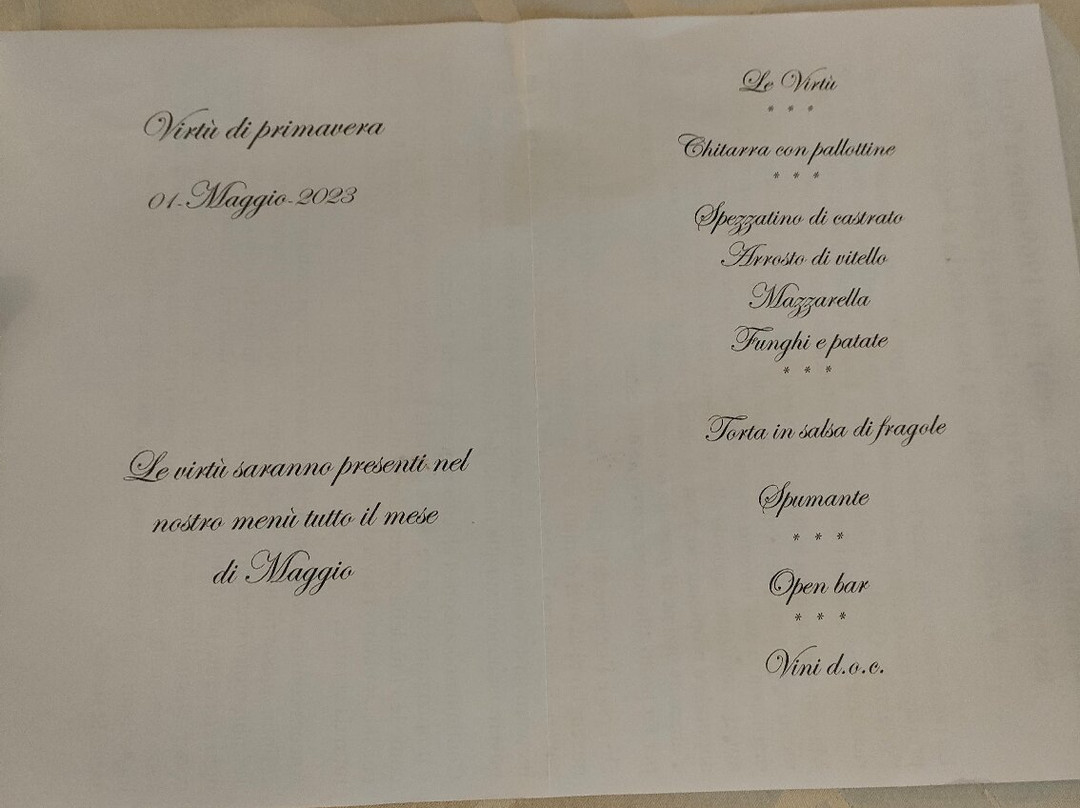 Virtù di primavera
01-Maggio-2023
Le virtù saranno presenti nel
nostro menù tutto il mese
di Maggio
Le Virtù
* * *
Chitarra con pallottine
* * *
Spezzatino di castrato
Arrosto di vitello
Mazzarella
Funghi e patate
* * *
Torta in salsa di fragole
Spumante
* * *
Open bar
* * *
Vini d.o.c.